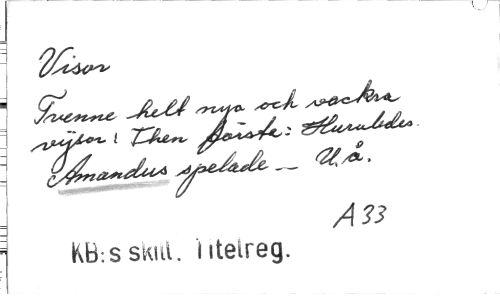 Visor
Tvenne helt nya och vackra
vijsor! Then första: Huruledes.
Amandus spelade — U.å.
A 33
KB:s skill. Titelreg.